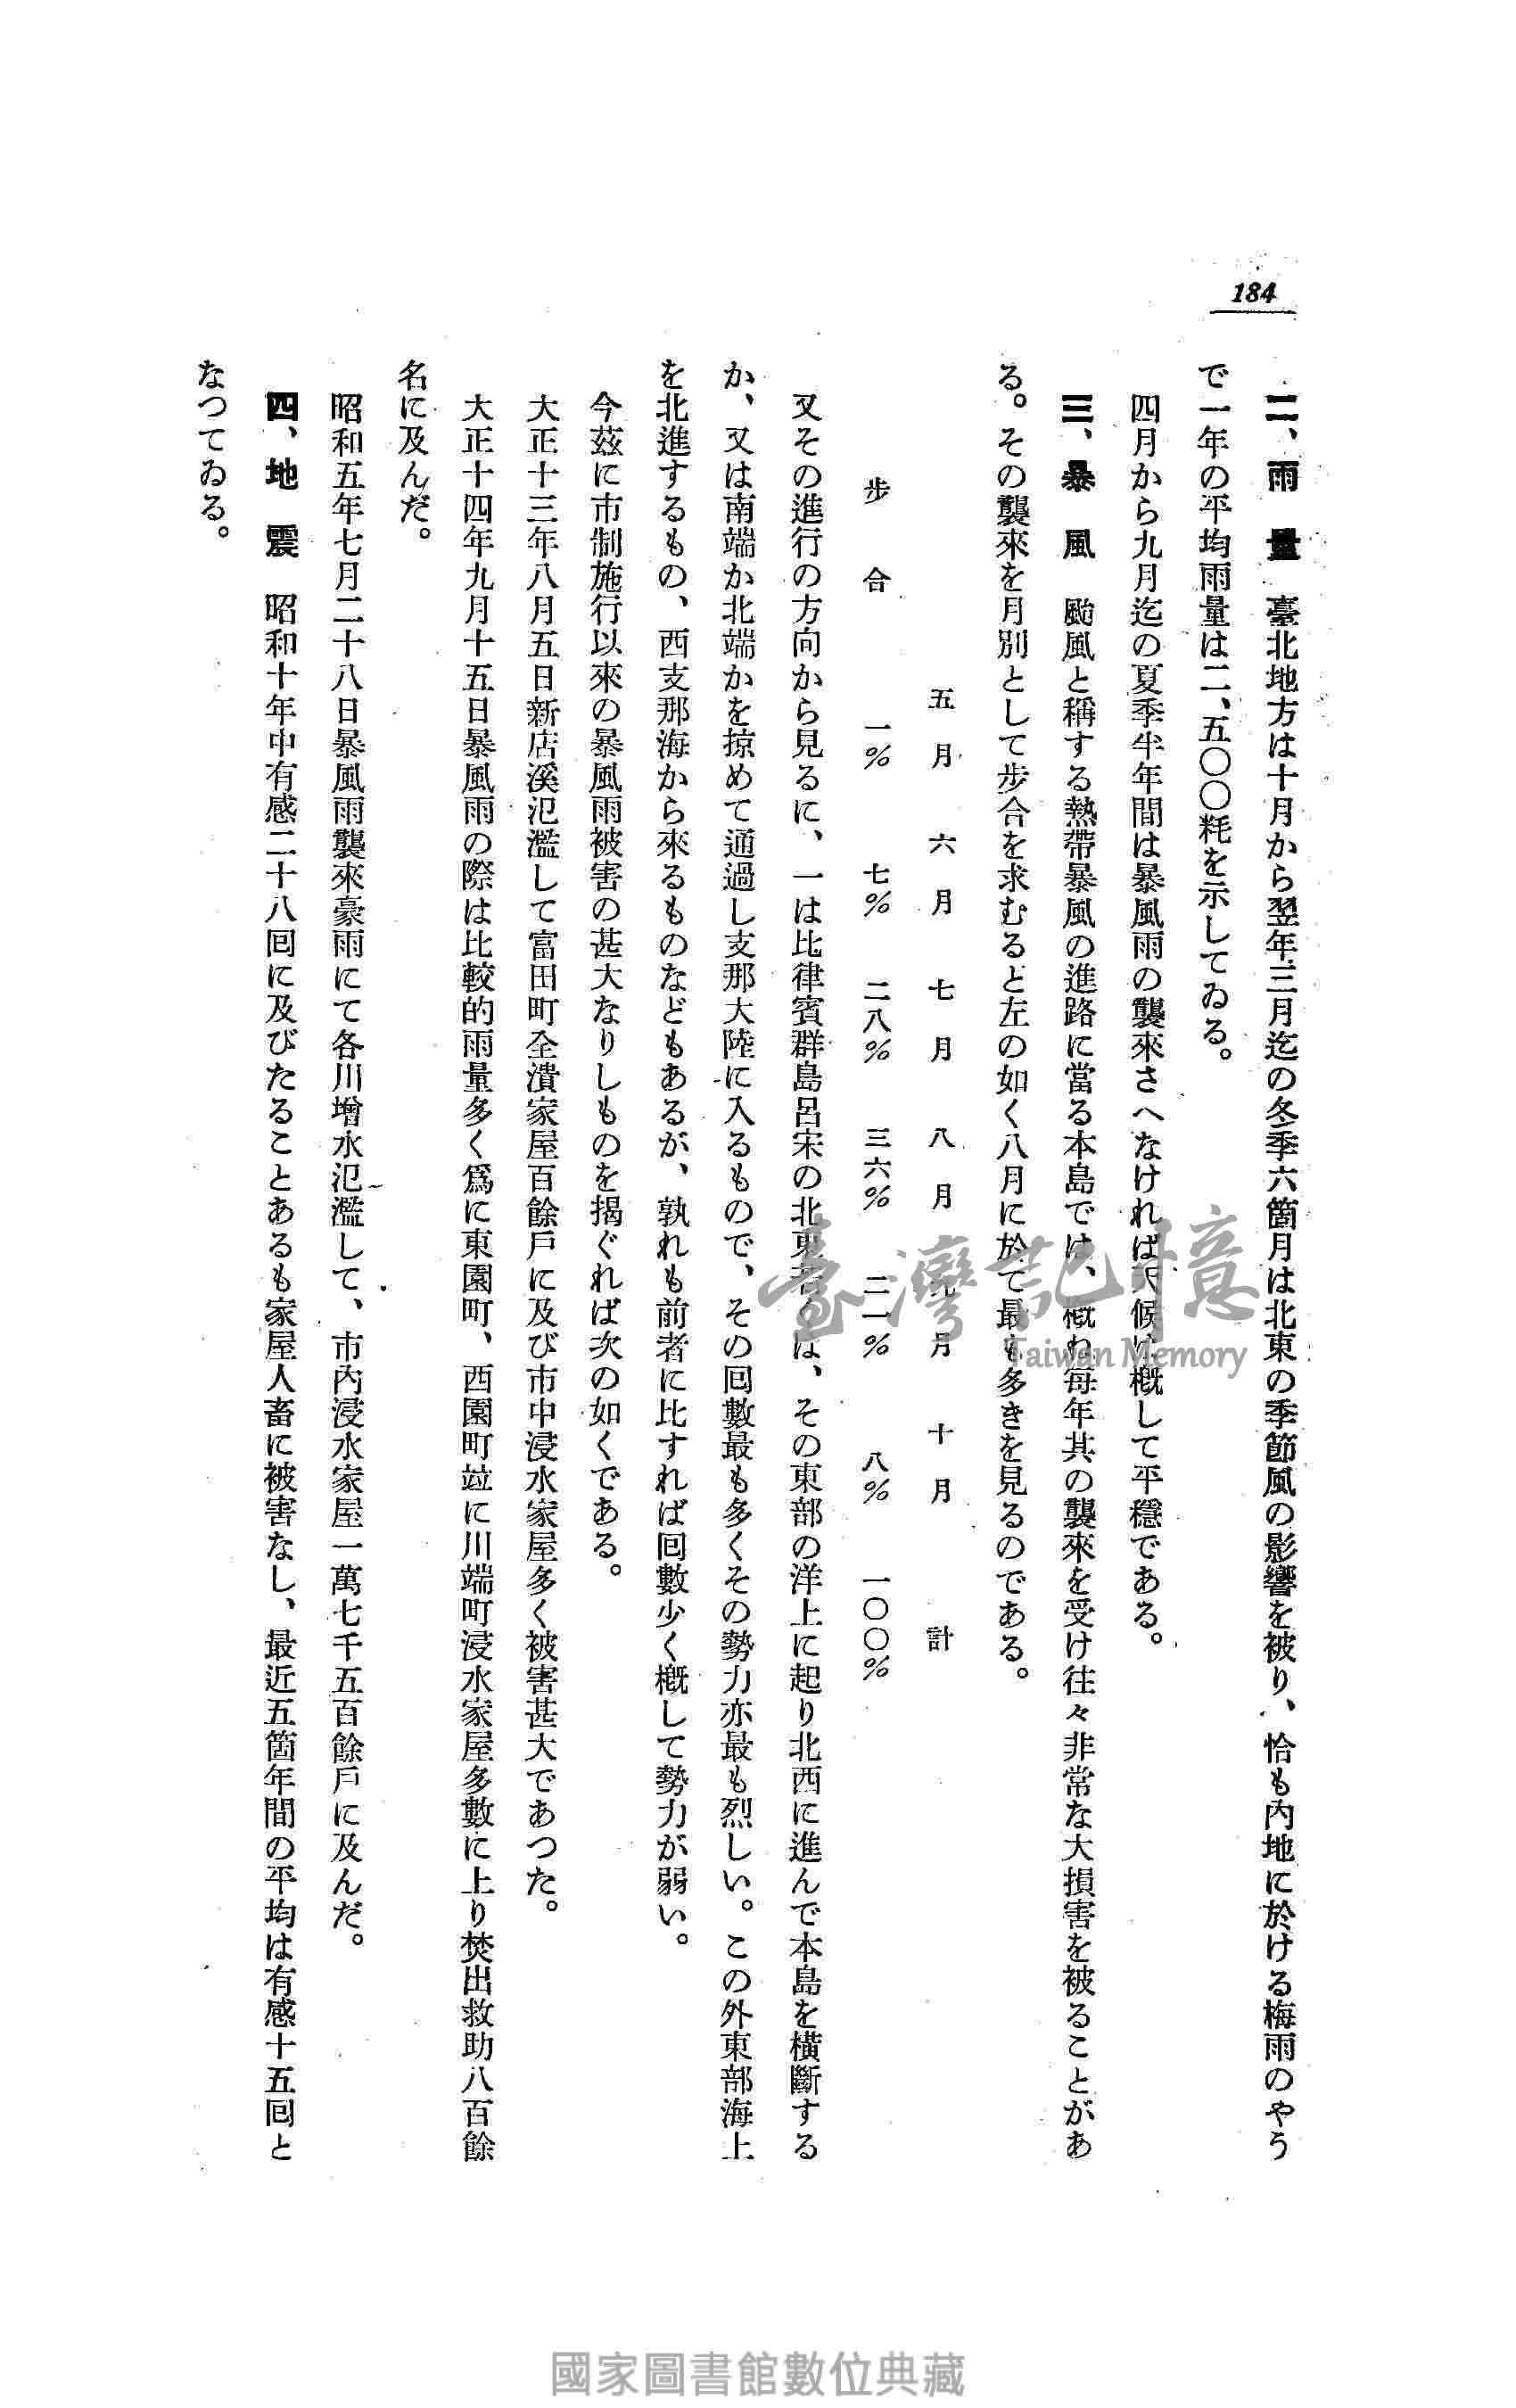 184
二、雨　量　臺北地方は十月から翌年三月迄の冬季六箇月は北東の季節風の影響を被り、恰も内地に於ける梅雨のやう
で一年の平均雨量は二、五〇〇粍を示してゐる。
四月から九月迄の夏季半年間は暴風雨の襲來さへなければ天候は概して平穩である。
三、暴　風　颱風と稱する熱帶暴風の進路に當る本島では、概ね每年其の襲來を受け往々非常な大損害を被ることがあ
る。その襲來を月別として步合を求むると左の如く八月に於て最も多きを見るのである。
五月　六月　七月　八月　九月　十月　計
步合　一％　七％　二八％　三六％　二一％　八％　一〇〇％
又その進行の方向から見るに、一は比律賓群島呂宋の北東若くは、その東部の洋上に起り北西に進んで本島を橫斷する
か、又は南端か北端かを掠めて通過し支那大陸に入るもので、その回數最も多くその勢力亦最も烈しい。この外東部海上
を北進するもの、西支那海から來るものなどもあるが、孰れも前者に比すれば回數少く槪して勢力が弱い。
今茲に市制施行以來の暴風雨被害の甚大なりしものを揭ぐれば次の如くである。
大正十三年八月五日新店溪氾濫して富田町全潰家屋百餘戶に及び市中浸水家屋多く被害甚大であつた。
大正十四年九月十五日暴風雨の際は比較的雨量多く爲に東園町、西園町竝に川端町浸水家屋多數に上り焚出救助八百餘
名に及んだ。
昭和五年七月二十八日暴風雨襲來豪雨にて各川增水氾濫して、市內浸水家屋一萬七千五百餘戶に及んだ。
四、地　震　昭和十年中有感二十八回に及びたることあるも家屋人畜に被害なし、最近五箇年間の平均は有感十五回と
なつてゐる。
臺灣記憶
Taiwan Memory
國家圖書館數位典藏